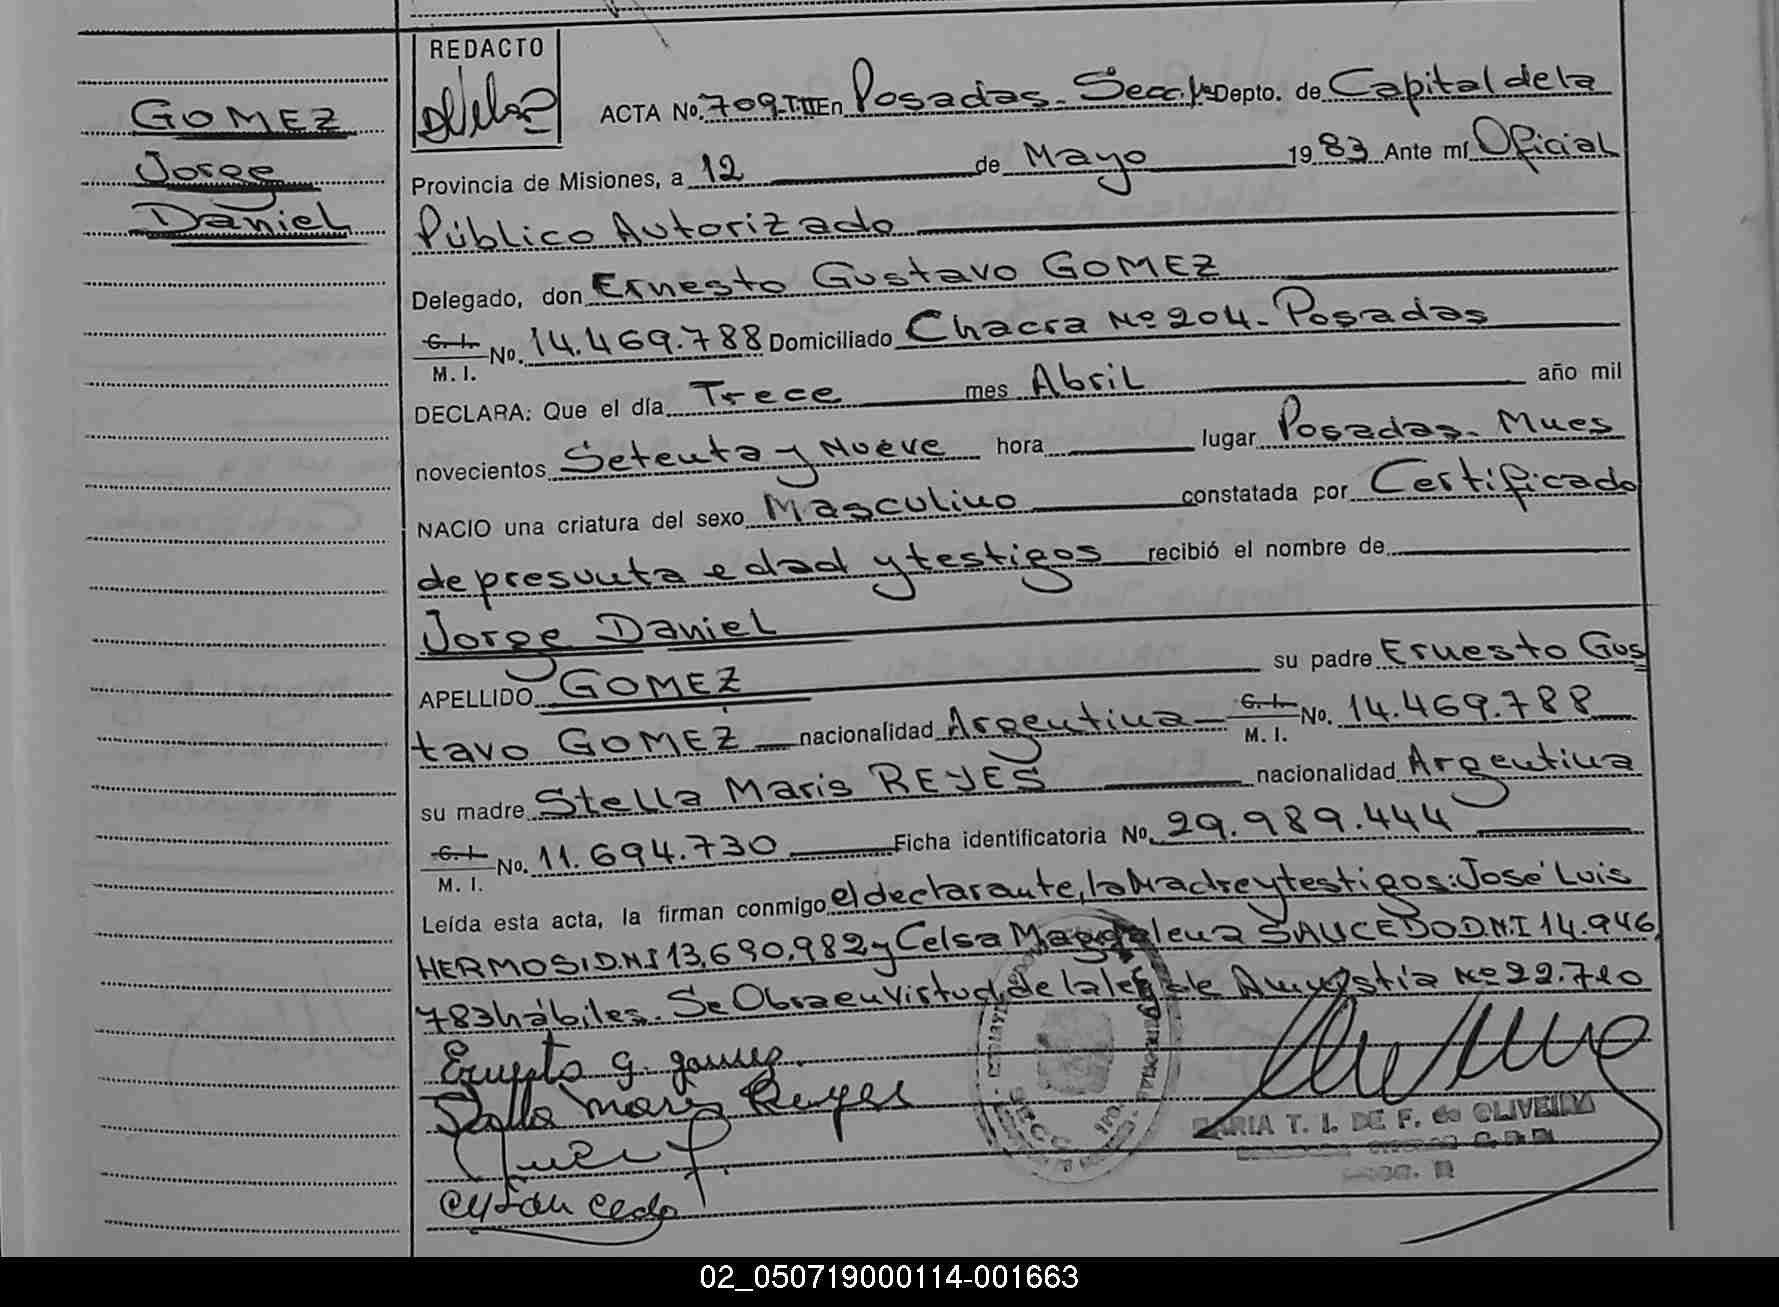 REDACTO
GOMEZ
Jorge
Daniel
ACTA No. 709.T.II En Posadas. Secc. 1ª Depto. de Capital de la
Provincia de Misiones, a 12 de Mayo 1983 Ante mí Oficial
Público Autorizado
Delegado, don Ernesto Gustavo GOMEZ
C.I. M.I. No. 14.469.788 Domiciliado Chacra Nº 204. Posadas
DECLARA: Que el día Trece mes Abril año mil
novecientos Setenta y Nueve hora lugar Posadas. Mnes
NACIO una criatura del sexo Masculino constatada por Certificado
de presunta edad y testigos recibió el nombre de
Jorge Daniel
APELLIDO GOMEZ su padre Ernesto Gus
tavo GOMEZ nacionalidad Argentina C.I. M.I. No. 14.469.788
su madre Stella Maris REYES nacionalidad Argentina
C.I. M.I. No. 11.694.730 Ficha identificatoria No. 29.989.444
Leída esta acta, la firman conmigo el declarante, la Madre y testigos: José Luis
HERMOSI D.N.I 13.690.982 y Celsa Magdalena SAUCEDO D.N.I 14.946
783 hábiles. Se Obra en Virtud de la ley de Amnistía Nº 22.710
Ernesto G. Gomez
Stella Maris Reyes
MARIA T. I. DE F. de OLIVEIRA
02_050719000114-001663